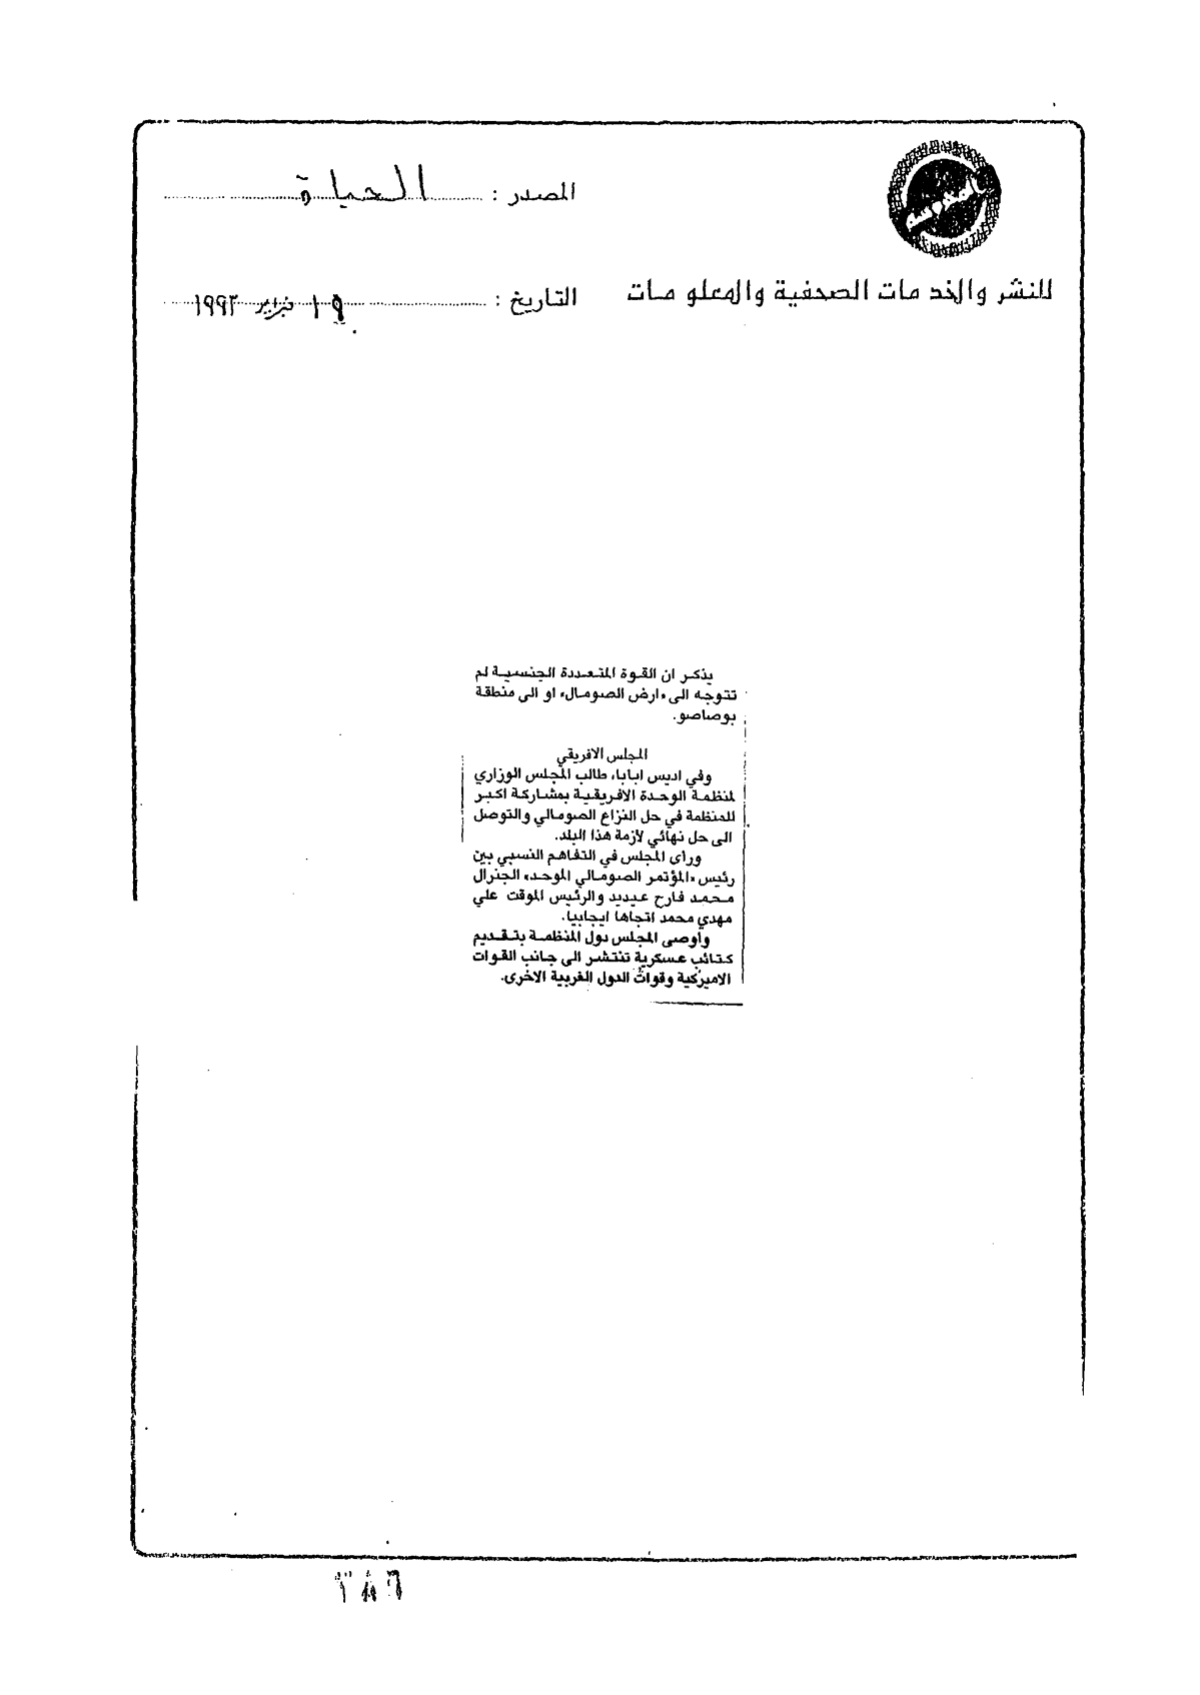 المصدر : الحياة
للنشر والخدمات الصحفية والمعلومات
التاريخ : ١٩ فبراير ١٩٩٣
يذكر ان القوة المتعددة الجنسية لم
تتوجه الى «ارض الصومال» او الى منطقة
بوصاصو.
المجلس الافريقي
وفي اديس ابابا، طالب المجلس الوزاري
لمنظمة الوحدة الافريقية بمشاركة اكبر
للمنظمة في حل النزاع الصومالي والتوصل
الى حل نهائي لأزمة هذا البلد.
ورأى المجلس في التفاهم النسبي بين
رئيس «المؤتمر الصومالي الموحد» الجنرال
محمد فارح عيديد والرئيس الموقت علي
مهدي محمد اتجاها ايجابيا.
وأوصى المجلس دول المنظمة بتقديم
كتائب عسكرية تنتشر الى جانب القوات
الاميركية وقوات الدول الغربية الاخرى.